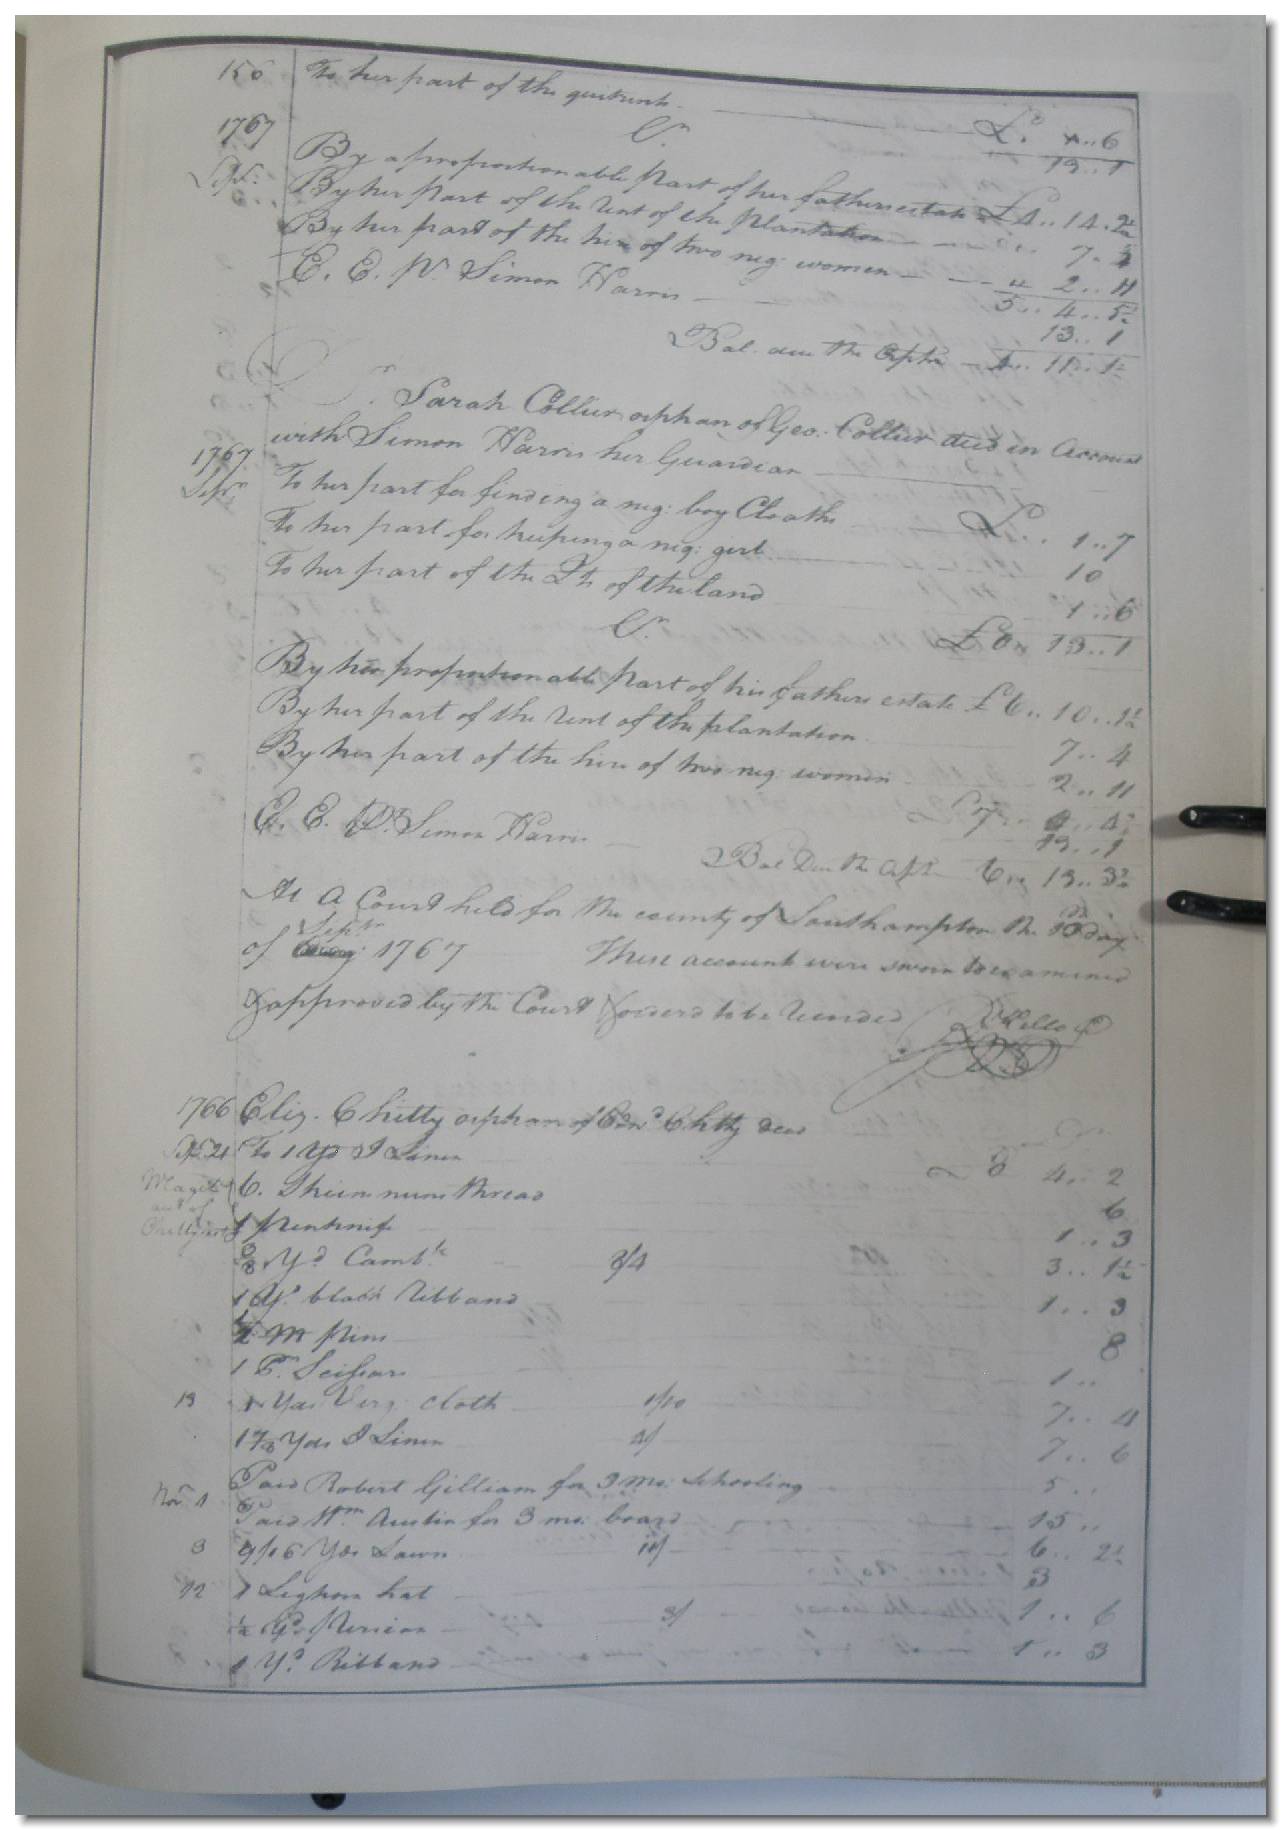 156 To her part of the quitrents £" 1..6
13..1
Cr.
1767
Sepr. By a proportionable Part of her fathers estate £4..14.2½
By her part of the rent of the Plantation 7..4
By her part of the hire of two neg: women 2..11
E. E. Pr. Simon Harris 5..4..5½
13..1
Bal. due the Orphn 4..11..4½
Dr. Sarah Collier orphan of Geo: Collier decd in Account
with Simon Harris her Guardian
1767
Sepr. To her part for finding a neg: boy Cloaths £.. 1..7
To her part for keeping a neg: girl 10
To her part of the Qts of the land 1..6
£0.. 13..1
Cr.
By her proportionable Part of his fathers estate £6..10..1½
By her part of the rent of the plantation 7..4
By her part of the hire of two neg: women 2..11
£7..0..4½
E. E. Pr. Simon Harris 13..1
Bal Due the Orpn 6.. 7..3½
At A Court held for the county of Southampton the day
of Septr. 1767 These account were sworn to examined
& approved by the Court & orderd to be recorded
RKello CC
1766 Eliz. Chitty orphan of Edwd Chitty decd
Sept. 21 To 1 Yd I Linen £0 4..2
6. Skeins nuns thread 6
1 penknife 1..3
3/8 Yd Cambk 8/4 3..1½
1 Yd. black Ribband 1..3
½ m pins 8
1 Pr. Scissars 1..
13 4 Yds Virg. cloth 1/10 7..4
1 7/8 Yds I Linen 4/ 7..6
Novr 1 Paid Robert Gilliam for 3 mo: Schooling 5..
Paid Wm. Austin for 3 mo: board 15..
3 9/16 Yds Lawn 11/ 6..2½
12 1 Leghorn hat 3
½ Yd Persian 3/ 1..6
1 Yd. Ribband 1..3